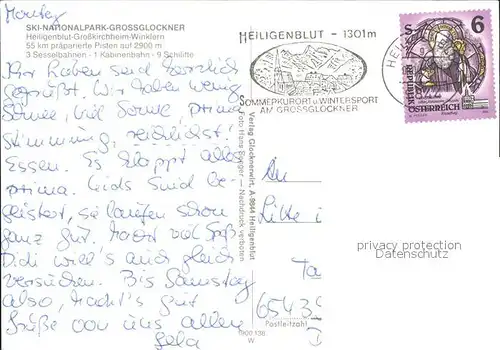 Montag
SKI-NATIONALPARK-GROSSGLOCKNER
Heiligenblut-Großkirchheim-Winklern
55 km präparierte Pisten auf 2900 m
3 Sesselbahnen - 1 Kabinenbahn - 9 Schilifte
Ihr Lieben seid herzlich
gegrüßt. Wir haben wenig
Schnee, viel Sonne, prima
Stimmung, reichlichst!
Essen. Es klappt alles
prima. Kids sind be-
geistert, sie laufen schon
ganz gut. Macht viel Spaß.
Didi will's auch gleich
versuchen. Bis Samstag
also, macht's gut
Grüße von uns allen
HEILIGENBLUT - 1301m
SOMMERKURORT u. WINTERSPORT
AM GROSSGLOCKNER
HEILI
S 6
REPUBLIK
ÖSTERREICH
Verlag Glocknerwirt, A 9844 Heiligenblut
Nachdruck verboten
An
Litke
privacy protection
Datenschutz
6543
Postleitzahl
9900 138
W.